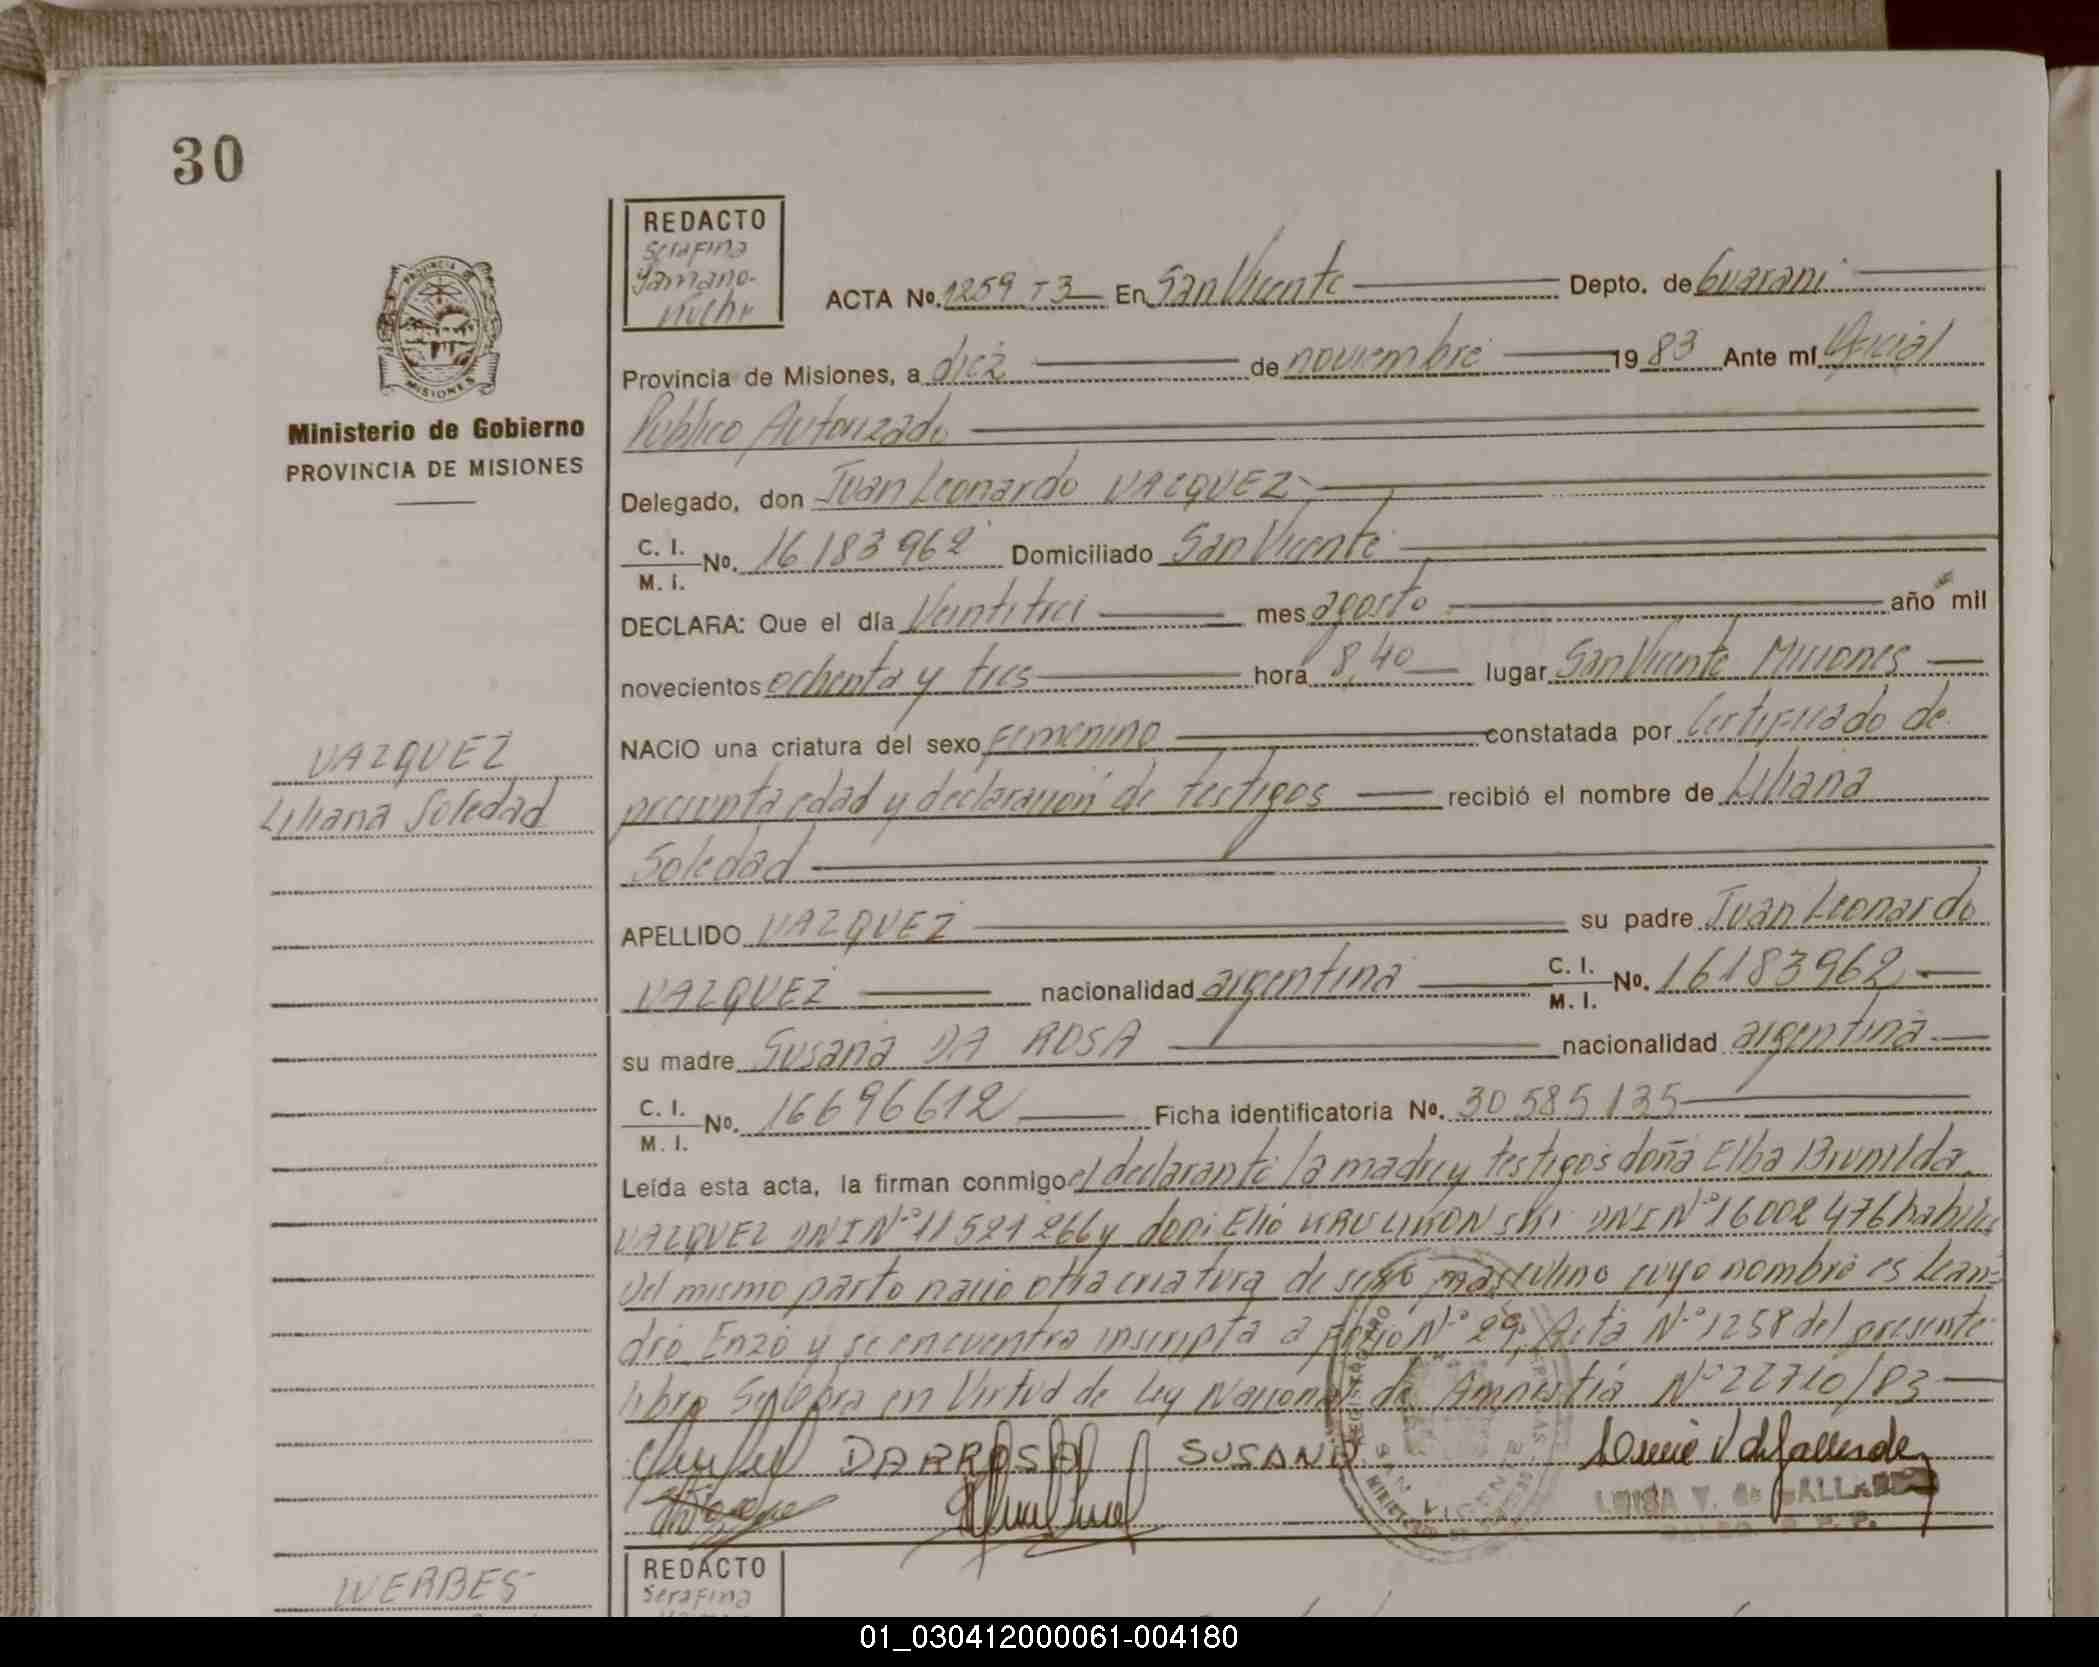 30
REDACTO
Serafina
Yamano-
ACTA No. 1259 T3 En San Vicente Depto. de Guarani
Provincia de Misiones, a diez de noviembre 1983 Ante mí Oficial
Publico Autorizado
Ministerio de Gobierno
PROVINCIA DE MISIONES
Delegado, don Juan Leonardo VAZQUEZ
C. I.
M. I. No. 16183962 Domiciliado San Vicente
DECLARA: Que el día Veintitrei mes agosto año mil
novecientos ochenta y tres hora 8,40 lugar San Vicente Misiones
VAZQUEZ
Liliana Soledad
NACIO una criatura del sexo Femenino constatada por Certificado de
presunta edad y declaración de testigos recibió el nombre de Liliana
Soledad
APELLIDO VAZQUEZ su padre Juan Leonardo
VAZQUEZ nacionalidad argentina C. I. M. I. No. 16183962
su madre Susana DA ROSA nacionalidad argentina
C. I.
M. I. No. 16696612 Ficha identificatoria No. 30585135
Leída esta acta, la firman conmigo el declarante la madre y testigos doña Elba Brunilda
VAZQUEZ DNI Nº 11521266 y don Elio DNI Nº 16002476 habiles
Del mismo parto nacio otra criatura de sexo masculino cuyo nombre es Lean-
dro Enzo y se encuentra inscripta a Folio Nº 29, Acta Nº 1258 del presente
libro Se labra en Virtud de Ley Nacional de Amnistia Nº 22710/83
DARROSA SUSANA
SAN VICENTE
LUISA V. de GALLARDO
REDACTO
Serafina
WERBES
01_030412000061-004180